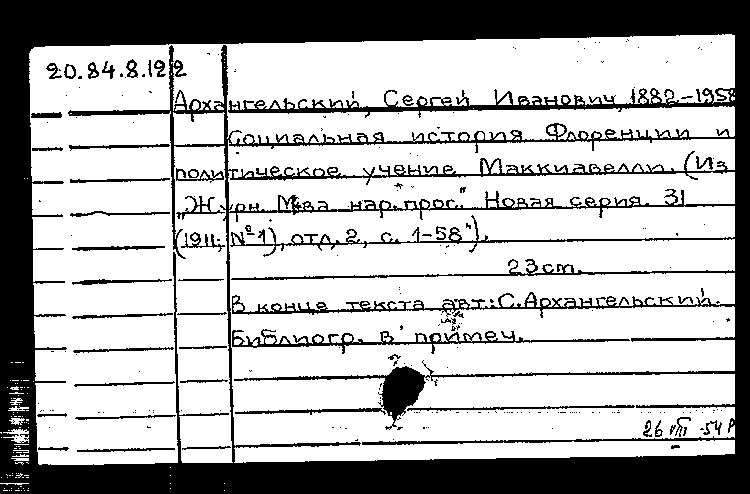 20.84.8.122
Архангельский, Сергей Иванович, 1882-1958
Социальная история Флоренции и
политическое учение Маккиавелли. (Из
„Журн. М-ва нар. прос." Новая серия. 31
(1911; №1), отд. 2, с. 1-58").
23cm.
В конце текста авт.: С. Архангельский.
Библиогр. в примеч.
26 VIII 54